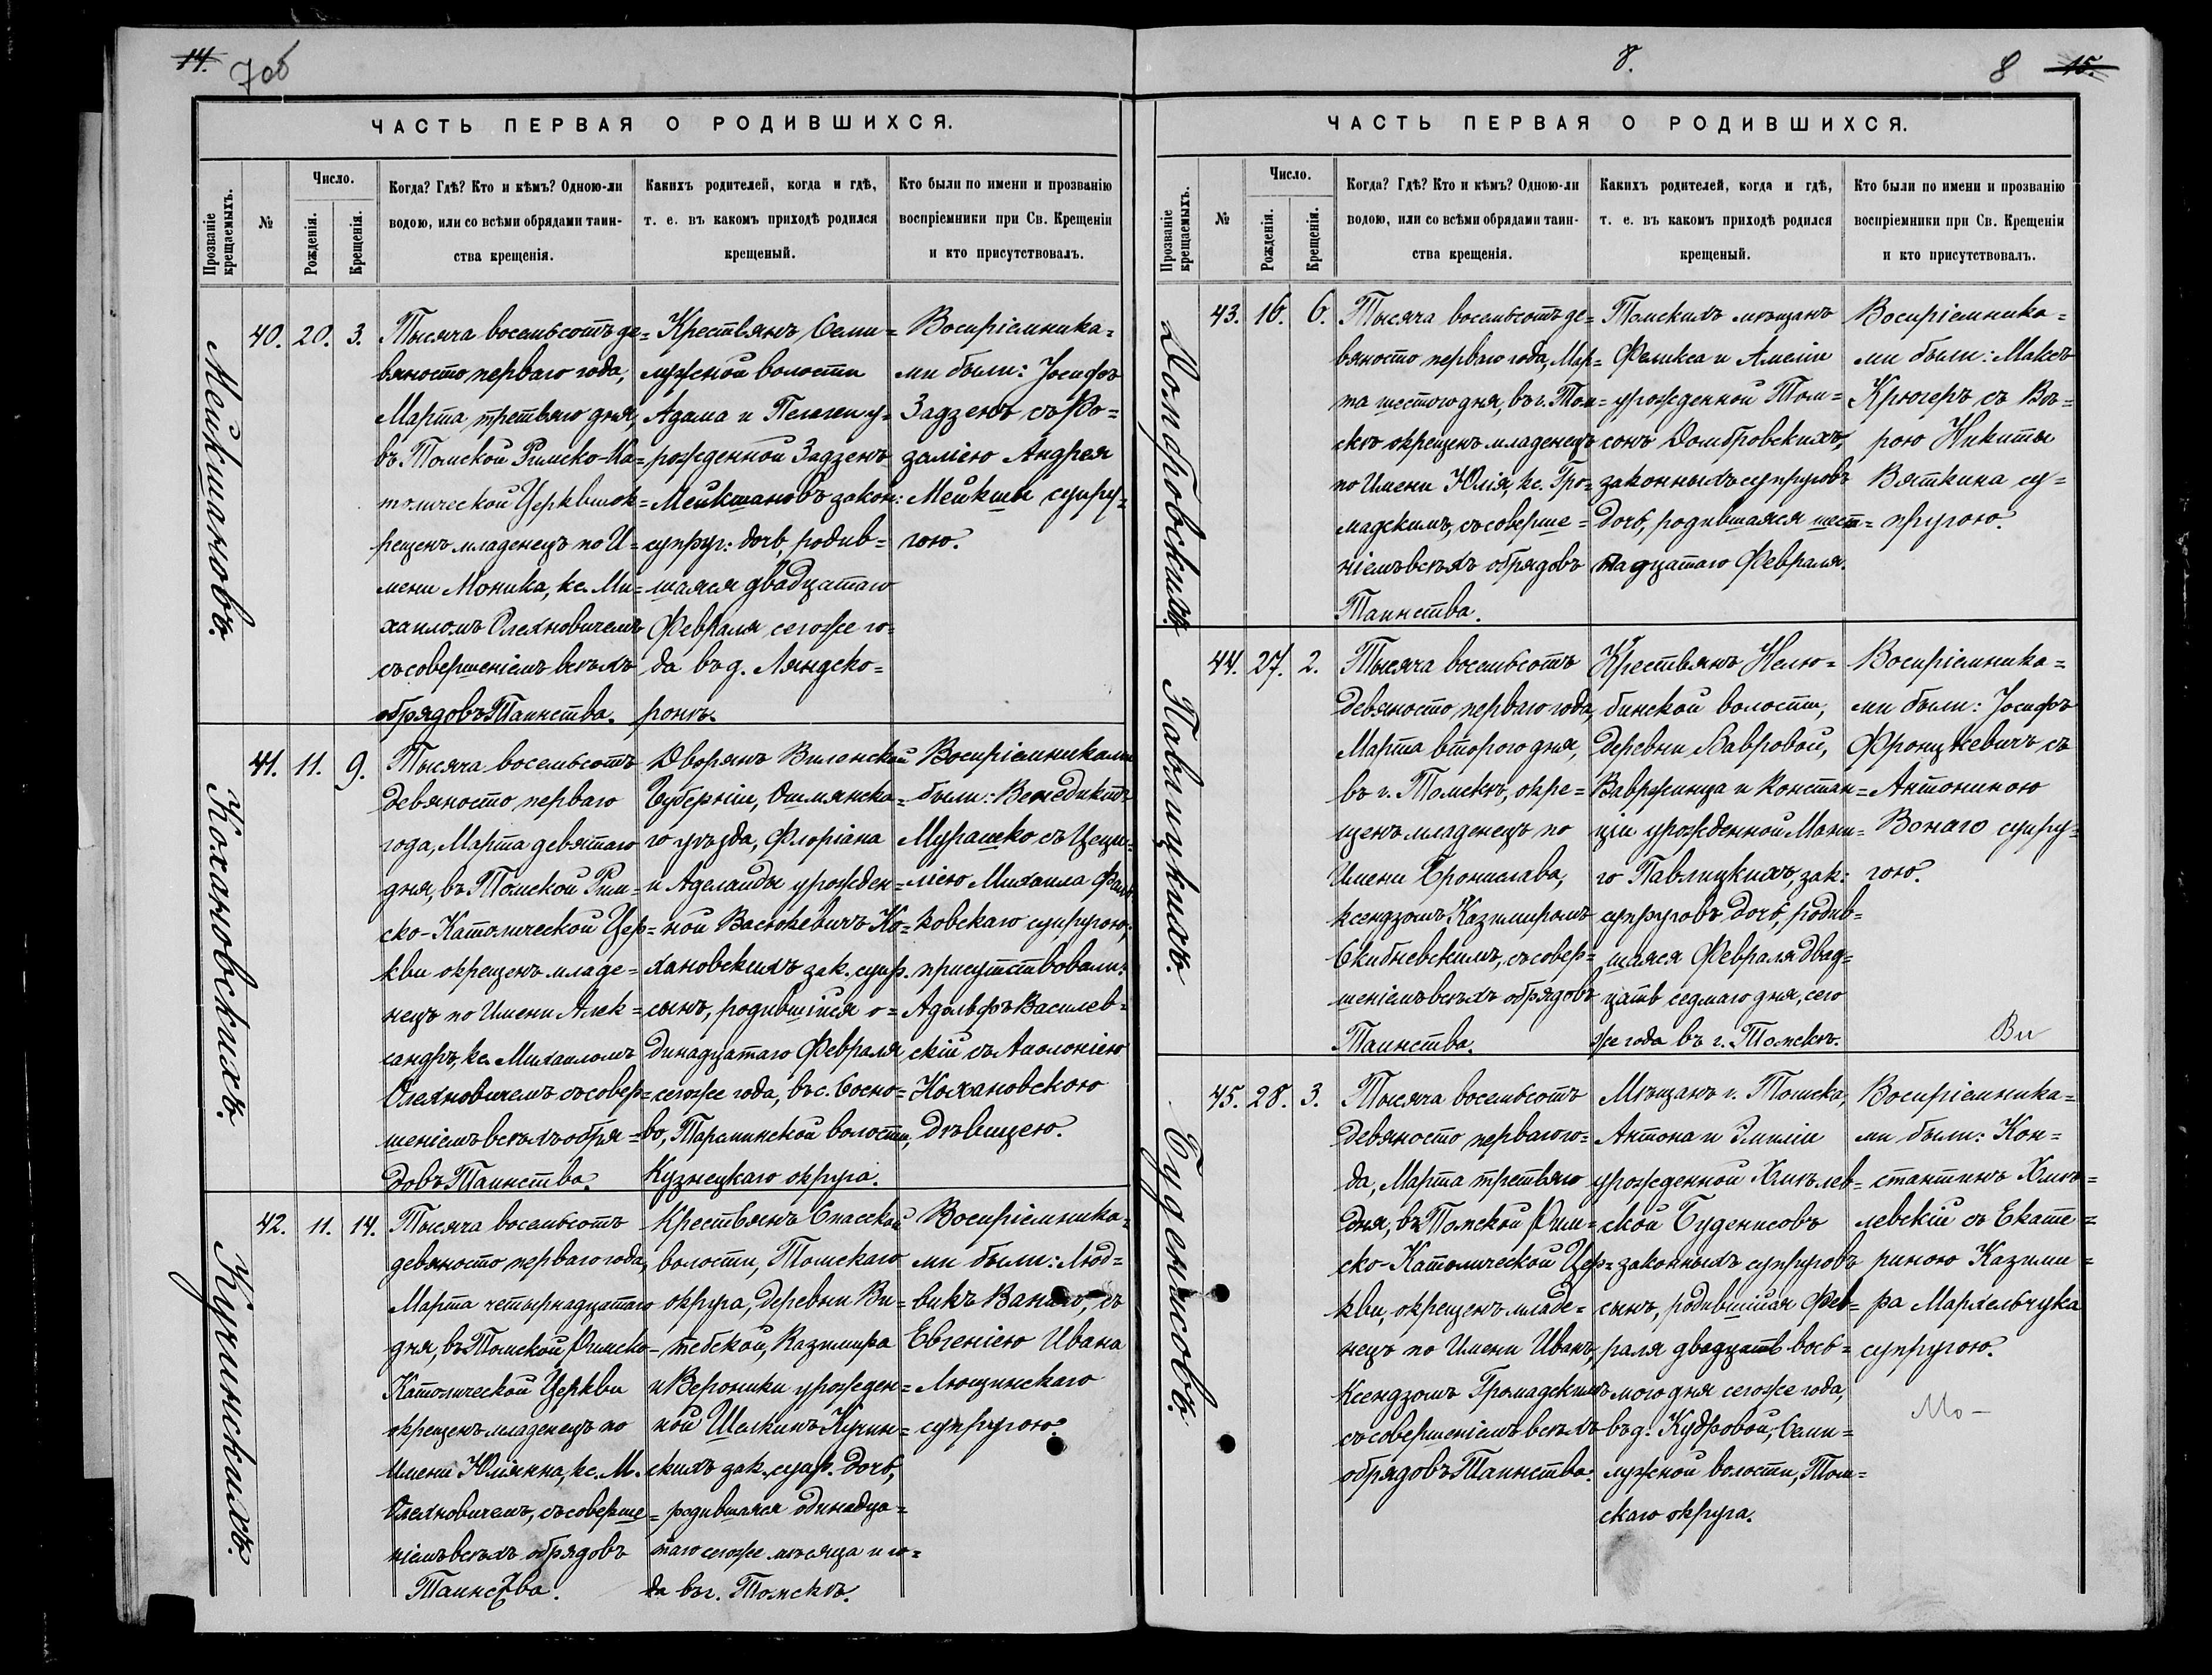 14.
7об
ЧАСТЬ ПЕРВАЯ О РОДИВШИХСЯ.
Прозваніе крещаемыхъ.
№
Число.
Рожденія.
Крещенія.
Когда? Гдѣ? Кто и кѣмъ? Одною-ли
водою, или со всѣми обрядами таин-
ства крещенія.
Какихъ родителей, когда и гдѣ,
т. е. въ какомъ приходѣ родился
крещеный.
Кто были по имени и прозванію
воспріемники при Св. Крещеніи
и кто присутствовалъ.
Мейкшановъ.
40. 20. 3.
Тысяча восемьсотъ де=
вяносто перваго года,
Марта, третьяго дня,
въ Томской Римско-Ка=
толической Церкви ок=
рещенъ младенецъ по И=
мени Моника, кс. Ми=
хаиломъ Олехновичемъ
съ совершеніемъ всѣхъ
обрядовъ Таинства.
Крестьянъ Семи=
лужной волости
Адама и Пелагеи у=
рожденной Задзенъ
Мейкшановъ закон:
супруг: дочь, родив=
шаяся двадцатаго
Февраля сегоже го=
да въ д. Ляндско=
ронѣ.
Воспріемника=
ми были: Іосифъ
Задзенъ съ Ро=
заліею Андрея
Мейкши супру=
гою.
Кохановскихъ.
41. 11. 9.
Тысяча восемьсотъ
девяносто перваго
года, Марта девятаго
дня, въ Томской Рим=
ско-Католической Цер=
кви окрещенъ младе=
нецъ по Имени Алек=
сандръ, кс. Михаиломъ
Олехновичемъ съ совер=
шеніемъ всѣхъ обря=
довъ Таинства.
Дворянъ Виленской
Губерніи, Ошмянска=
го уѣзда, Флоріана
и Аделаиды урожден=
ной Васюкевичъ Ко=
хановскихъ зак. супр.
сынъ, родившійся о=
динадцатаго Февраля
сегоже года, въ с. Сосно=
во, Тарсминской волости,
Кузнецкаго округа.
Воспріемниками
были: Венедиктъ
Мурашко съ Цеци=
ліею Михаила Фаль
ковскаго супругою,
присутствовали:
Адольфъ Василев=
скій съ Аполоніею
Кохановскою
дѣвицею.
Кучинскихъ.
42. 11. 14.
Тысяча восемьсотъ
девяносто перваго года,
Марта четырнадцатаго
дня, въ Томской Римско=
Католической Церкви
окрещенъ младенецъ по
Имени Юліянна, кс. М.
Олехновичемъ, съ соверше=
ніемъ всѣхъ обрядовъ
Таинства.
Крестьянъ Спасской
волости, Томскаго
округа, деревни Ви=
тебской, Казимира
и Вероники урожден=
ной Шелкинъ Кучин=
скихъ зак. супр. дочь,
родившаяся одинадца=
таго сегоже мѣсяца и го=
да въ г. Томскѣ.
Воспріемника=
ми были: Люд=
викъ съ
Евгеніею Ивана
Лющинскаго
супругою.
8.
8 15.
ЧАСТЬ ПЕРВАЯ О РОДИВШИХСЯ.
Прозваніе крещаемыхъ.
№
Число.
Рожденія.
Крещенія.
Когда? Гдѣ? Кто и кѣмъ? Одною-ли
водою, или со всѣми обрядами таин-
ства крещенія.
Какихъ родителей, когда и гдѣ,
т. е. въ какомъ приходѣ родился
крещеный.
Кто были по имени и прозванію
воспріемники при Св. Крещеніи
и кто присутствовалъ.
Домбровскихъ.
43. 16. 6.
Тысяча восемьсотъ де=
вяносто перваго года, Мар=
та шестого дня, въ г. Том=
скѣ окрещенъ младенецъ
по Имени Юлія, кс. Гро=
мадскимъ, съ соверше=
ніемъ всѣхъ обрядовъ
Таинства.
Томскихъ мѣщанъ
Феликса и Амеліи
урожденной Том=
сонъ Домбровскихъ,
законныхъ супруговъ
дочь, родившаяся шест=
надцатаго Февраля.
Воспріемника=
ми были: Максъ
Крюгеръ съ Вѣ=
рою Никиты
Вяткина су=
пругою.
Павлицкихъ.
44. 27. 2.
Тысяча восемьсотъ
девяносто перваго года,
Марта второго дня,
въ г. Томскѣ, окре=
щенъ младенецъ по
Имени Бронислава,
ксендзомъ Казимиромъ
Скибневскимъ, съ совер=
шеніемъ всѣхъ обрядовъ
Таинства.
Крестьянъ Нелю=
бинской волости,
деревни Бавровой,
Вавржинца и Констан=
ціи урожденной Мани=
го Павлицкихъ, зак:
супруговъ дочь, родив=
шаяся Февраля двад=
цать седмаго дня, сего
же года въ г. Томскѣ.
Воспріемника=
ми были: Іосифъ
Фронцкевичъ съ
Антониною
Вонаго супру=
гою.
Ви
Буденисовъ.
45. 28. 3.
Тысяча восемьсотъ
девяносто перваго го=
да, Марта третьяго
дня, въ Томской Рим=
ско-Католической Цер=
кви, окрещенъ младе=
нецъ по Имени Иванъ,
Ксендзомъ Громадскимъ
съ совершеніемъ всѣхъ
обрядовъ Таинства.
Мѣщанъ г. Томска,
Антона и Эмиліи
урожденной Хмѣлев=
ской Буденисовъ
законныхъ супруговъ
сынъ, родившійся Фев=
раля двадцать вось=
мого дня сегоже года,
въ д. Кудровой, Семи=
лужной волости, Том=
скаго округа.
Воспріемника=
ми были: Кон=
стантинъ Хмѣ=
левскій съ Екате=
риною Казими=
ра Мархельчука
супругою.
Мо-